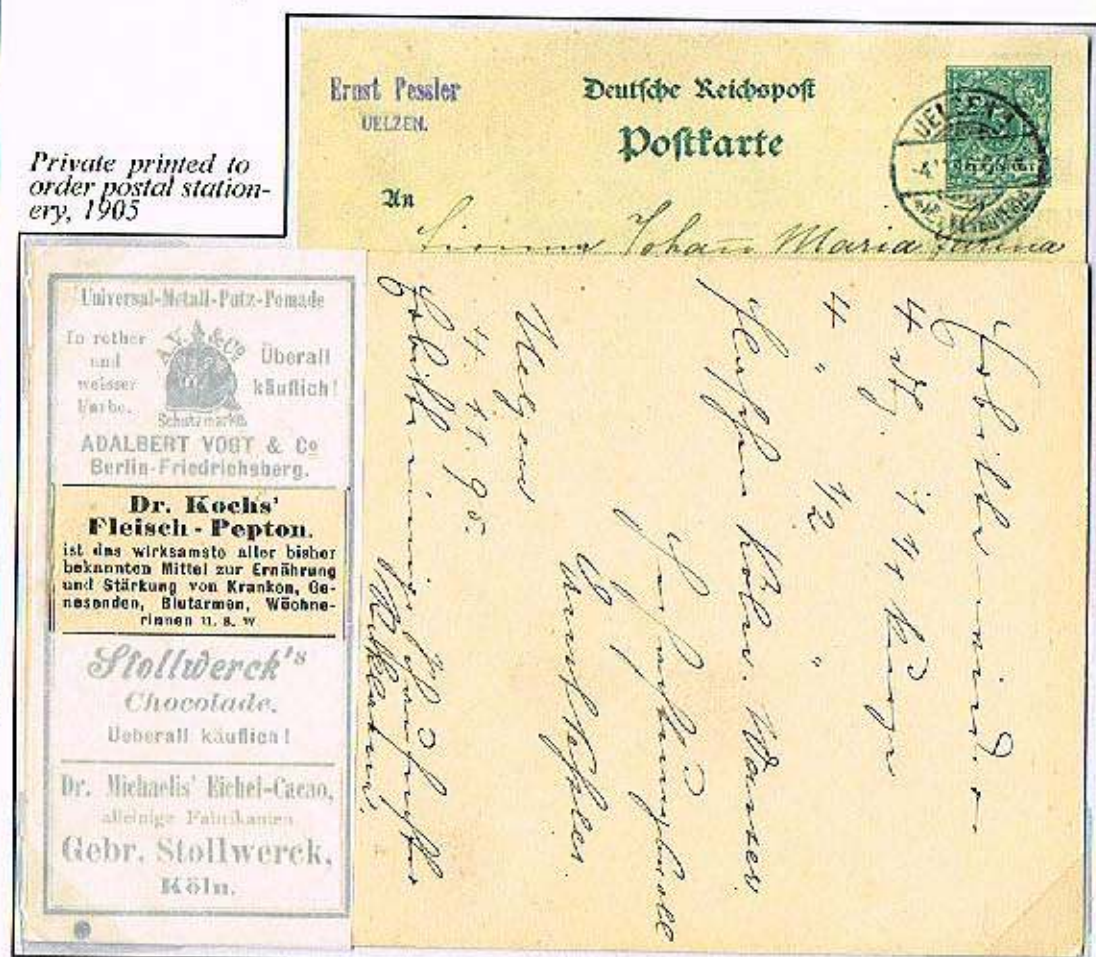 Private printed to
order postal station-
ery, 1905
Ernst Pessler
UELZEN.
Deutsche Reichspost
Postkarte
An
UELZEN
Firma Johan Maria Farina
Universal-Metall-Putz-Pomade
In rother
und
weisser
Farbe.
A.V. & Co
Überall
käuflich!
Schutzmarke
ADALBERT VOGT & Co
Berlin-Friedrichsberg.
Dr. Kochs'
Fleisch-Pepton.
ist das wirksamste aller bisher
bekannten Mittel zur Ernährung
und Stärkung von Kranken, Ge-
nesenden, Blutarmen, Wöchne-
rinnen u. s. w
Stollwerck's
Chocolade.
Ueberall käuflich!
Dr. Michaelis' Eichel-Cacao,
alleinige Fabrikanten
Gebr. Stollwerck,
Köln.
Erbitte
4
4 " 1/2 "
Flaschen Köln. Wasser
Hochachtungsvoll
Ernst Pessler.
Uelzen
4. 11. 95.
Erbitte